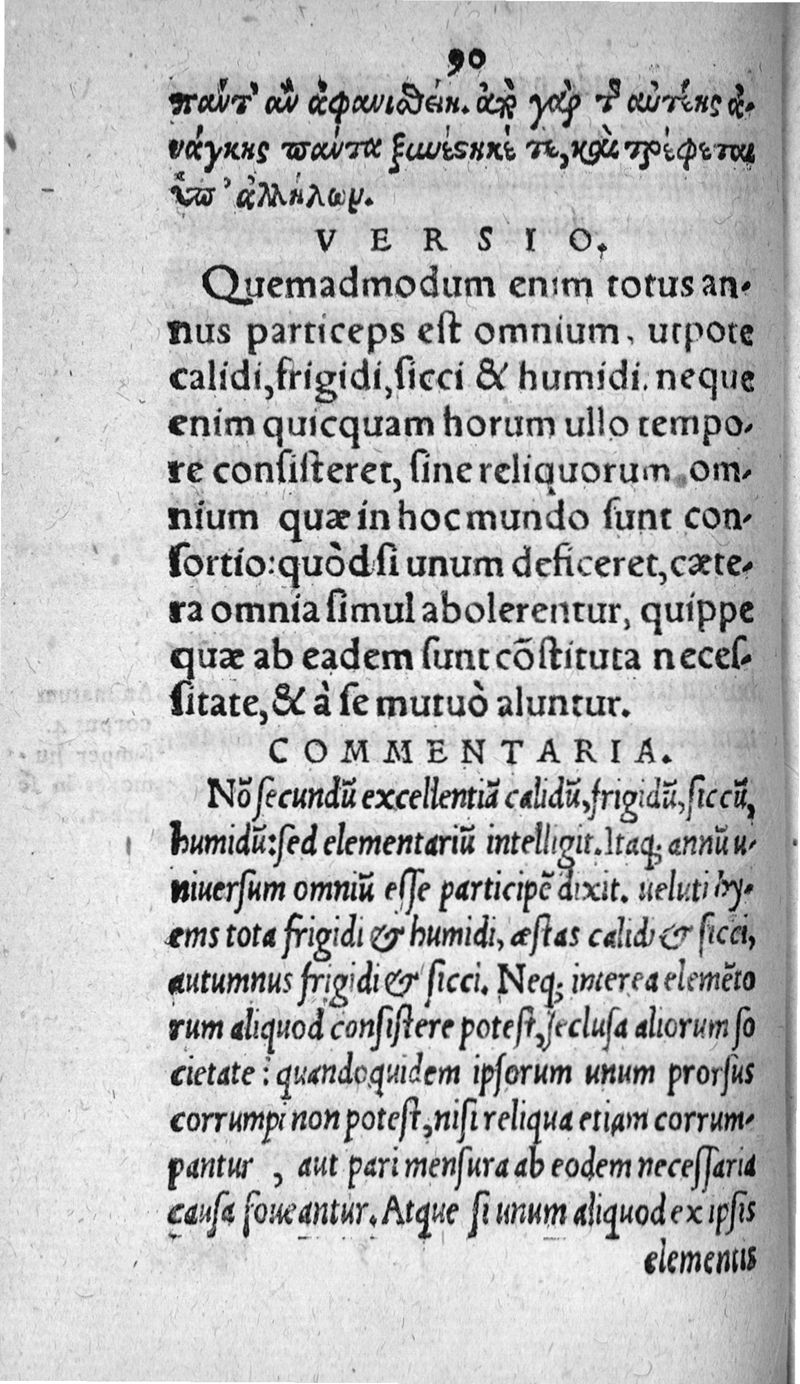 90
παντ' ἂν ἀφανισθείη. ἀπὸ γὰρ τ̃ αὐτέης ἀ-
νάγκης πάντα ξυνέστηκέ τε, καὶ τρέφεται
ὑπ' ἀλλήλων.
VERSIO.
Quemadmodum enim totus an-
nus particeps est omnium, utpote
calidi, frigidi, sicci & humidi. neque
enim quicquam horum ullo tempo-
re consisteret, sine reliquorum om-
nium quæ in hoc mundo sunt con-
sortio: quòd si unum deficeret, cæte-
ra omnia simul abolerentur, quippe
quæ ab eadem sunt cõstituta neces-
sitate, & à se mutuò aluntur.
COMMENTARIA.
Nõ secundũ excellentiã calidũ, frigidũ, siccũ,
humidũ: sed elementariũ intelligit. Itaq; annũ u-
niuersum omniũ esse participẽ dixit. ueluti hy-
ems tota frigidi & humidi, æstas calidi & sicci,
autumnus frigidi & sicci. Neq; interea elemẽto
rum aliquod consistere potest, seclusa aliorum so
cietate: quandoquidem ipsorum unum prorsus
corrumpi non potest, nisi reliqua etiam corrum-
pantur, aut pari mensura ab eodem necessaria
causa foueantur. Atque si unum aliquod ex ipsis
elementis